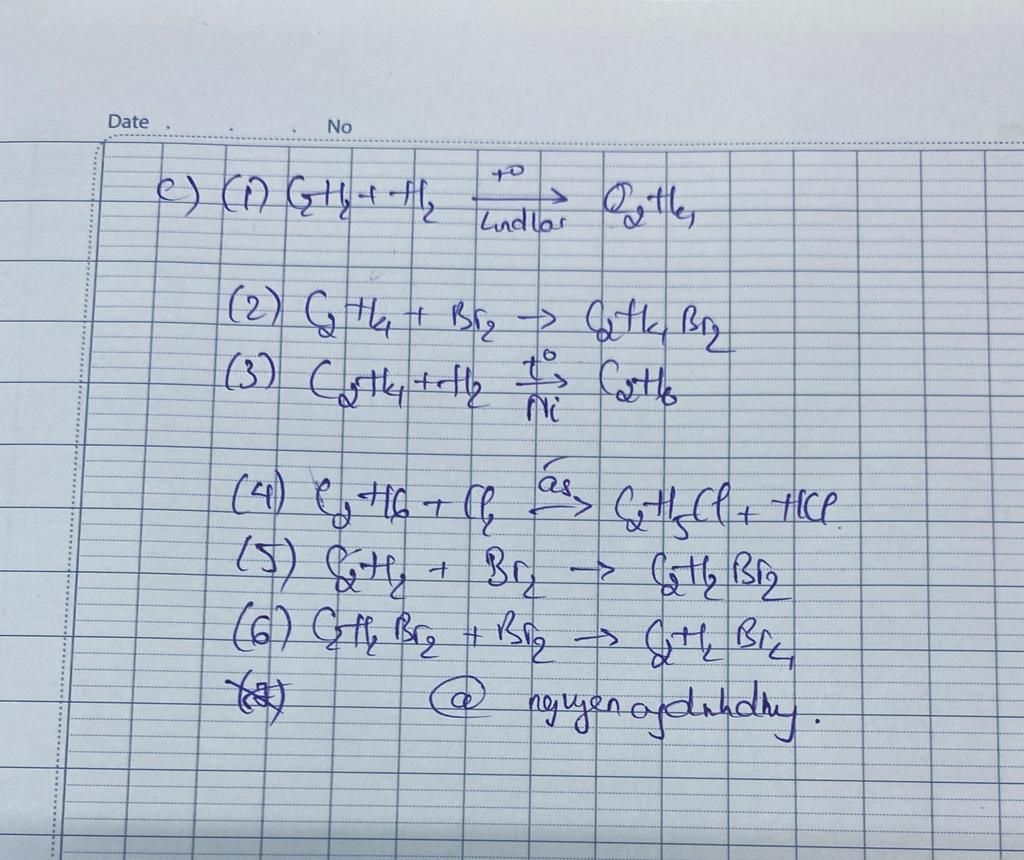 Date . . . No
e) (1) C2H2 + H2 —t°/Lindlar→ C2H4
(2) C2H4 + Br2 → C2H4Br2
(3) C2H4 + H2 —t°/Ni→ C2H6
(4) C2H6 + Cl2 —ás→ C2H5Cl + HCl.
(5) C2H2 + Br2 → C2H2Br2
(6) C2H2Br2 + Br2 → C2H2Br4
@